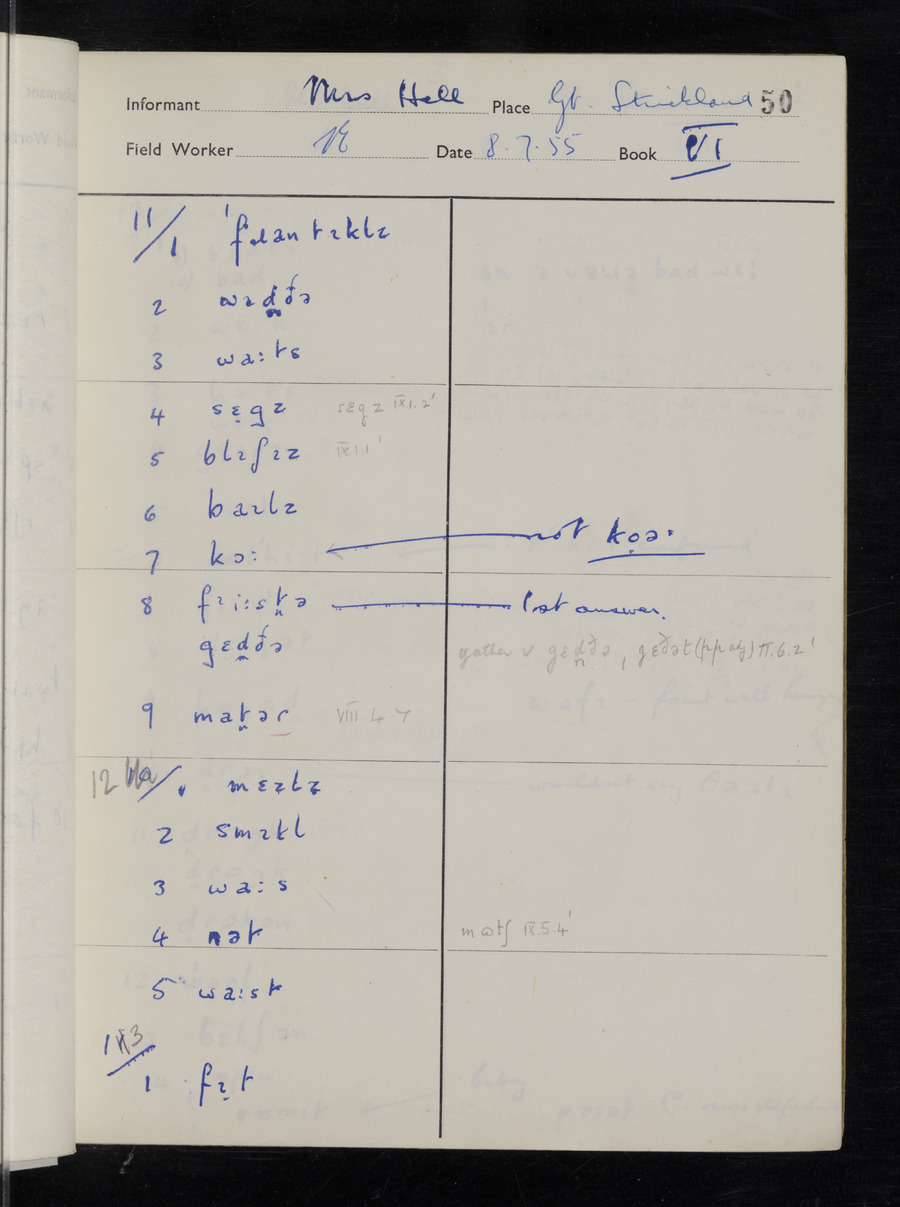 Informant Mrs Hall Place Gt. Strickland 50
Field Worker Date 8.7.55 Book VI
11/1
2 wɪd̪ðə
3 wa:ts
4 sęgz sɛgz IX.1.2'
5 blɪʃɪz IX.1.1'
6 baɪlz
7 kə: not kọə·
8 frɪ:st̪ə 1st answer.
gɛd̪ðə gather v gɛd̪ðə, gɛðət (pp adj) II.6.2'
9 mat̪ər VIII 4.7
12/1 mɛɪlz
2 smɪtl
3 wa:s
4 nət mɷtʃ IX.5.4'
5 wa:st
13/
1 fɪ̣t